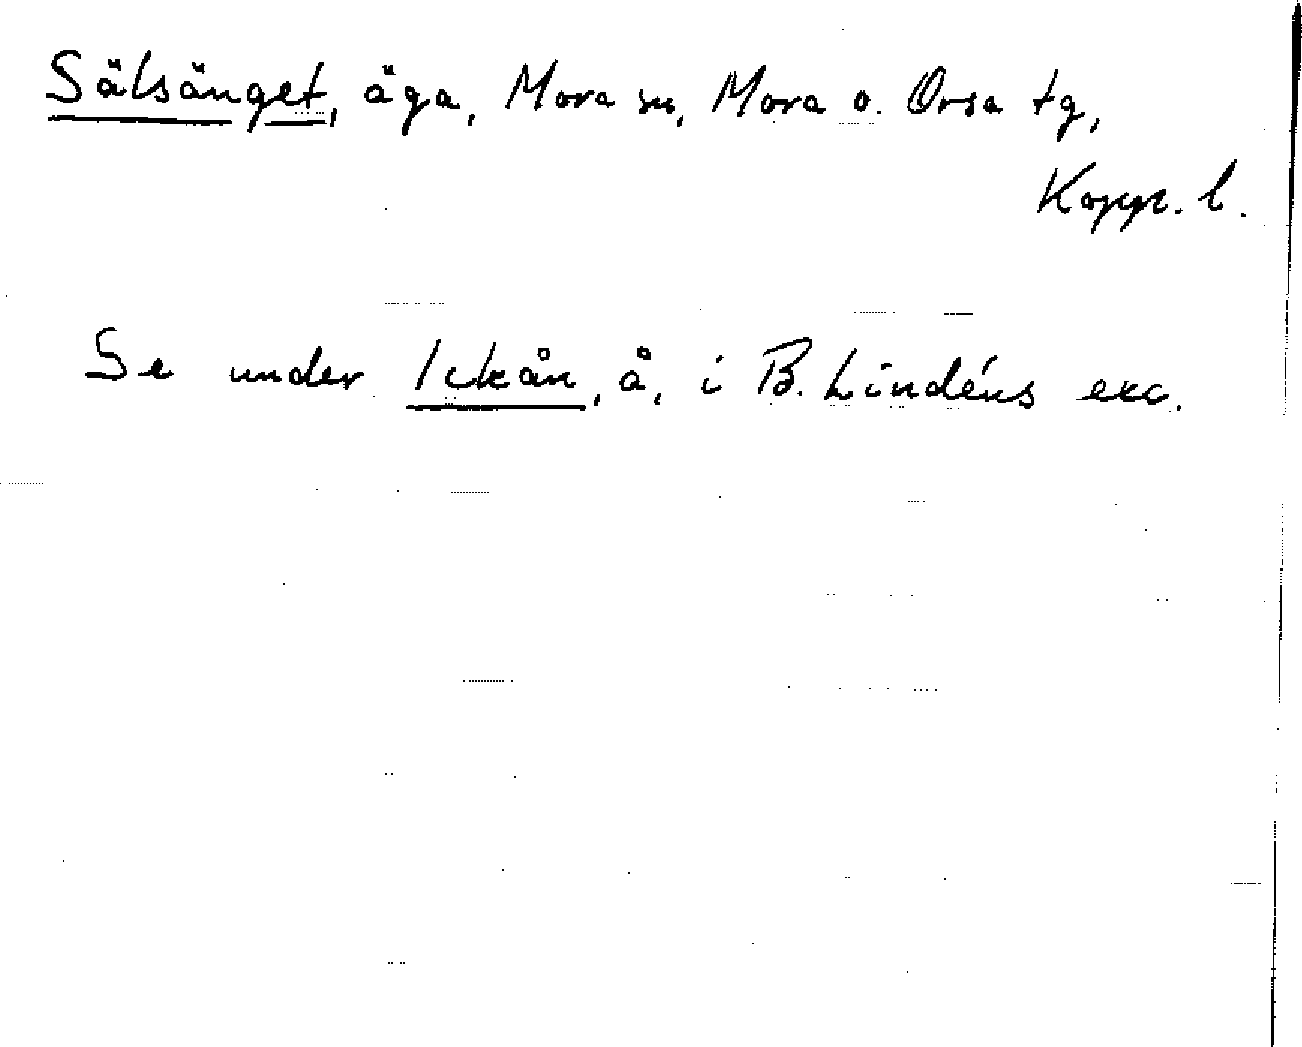 Sälsänget, äga, Mora sn, Mora o. Orsa tg,
Kopp. l.
Se under Ickån, å, i B. Lindéns exc.